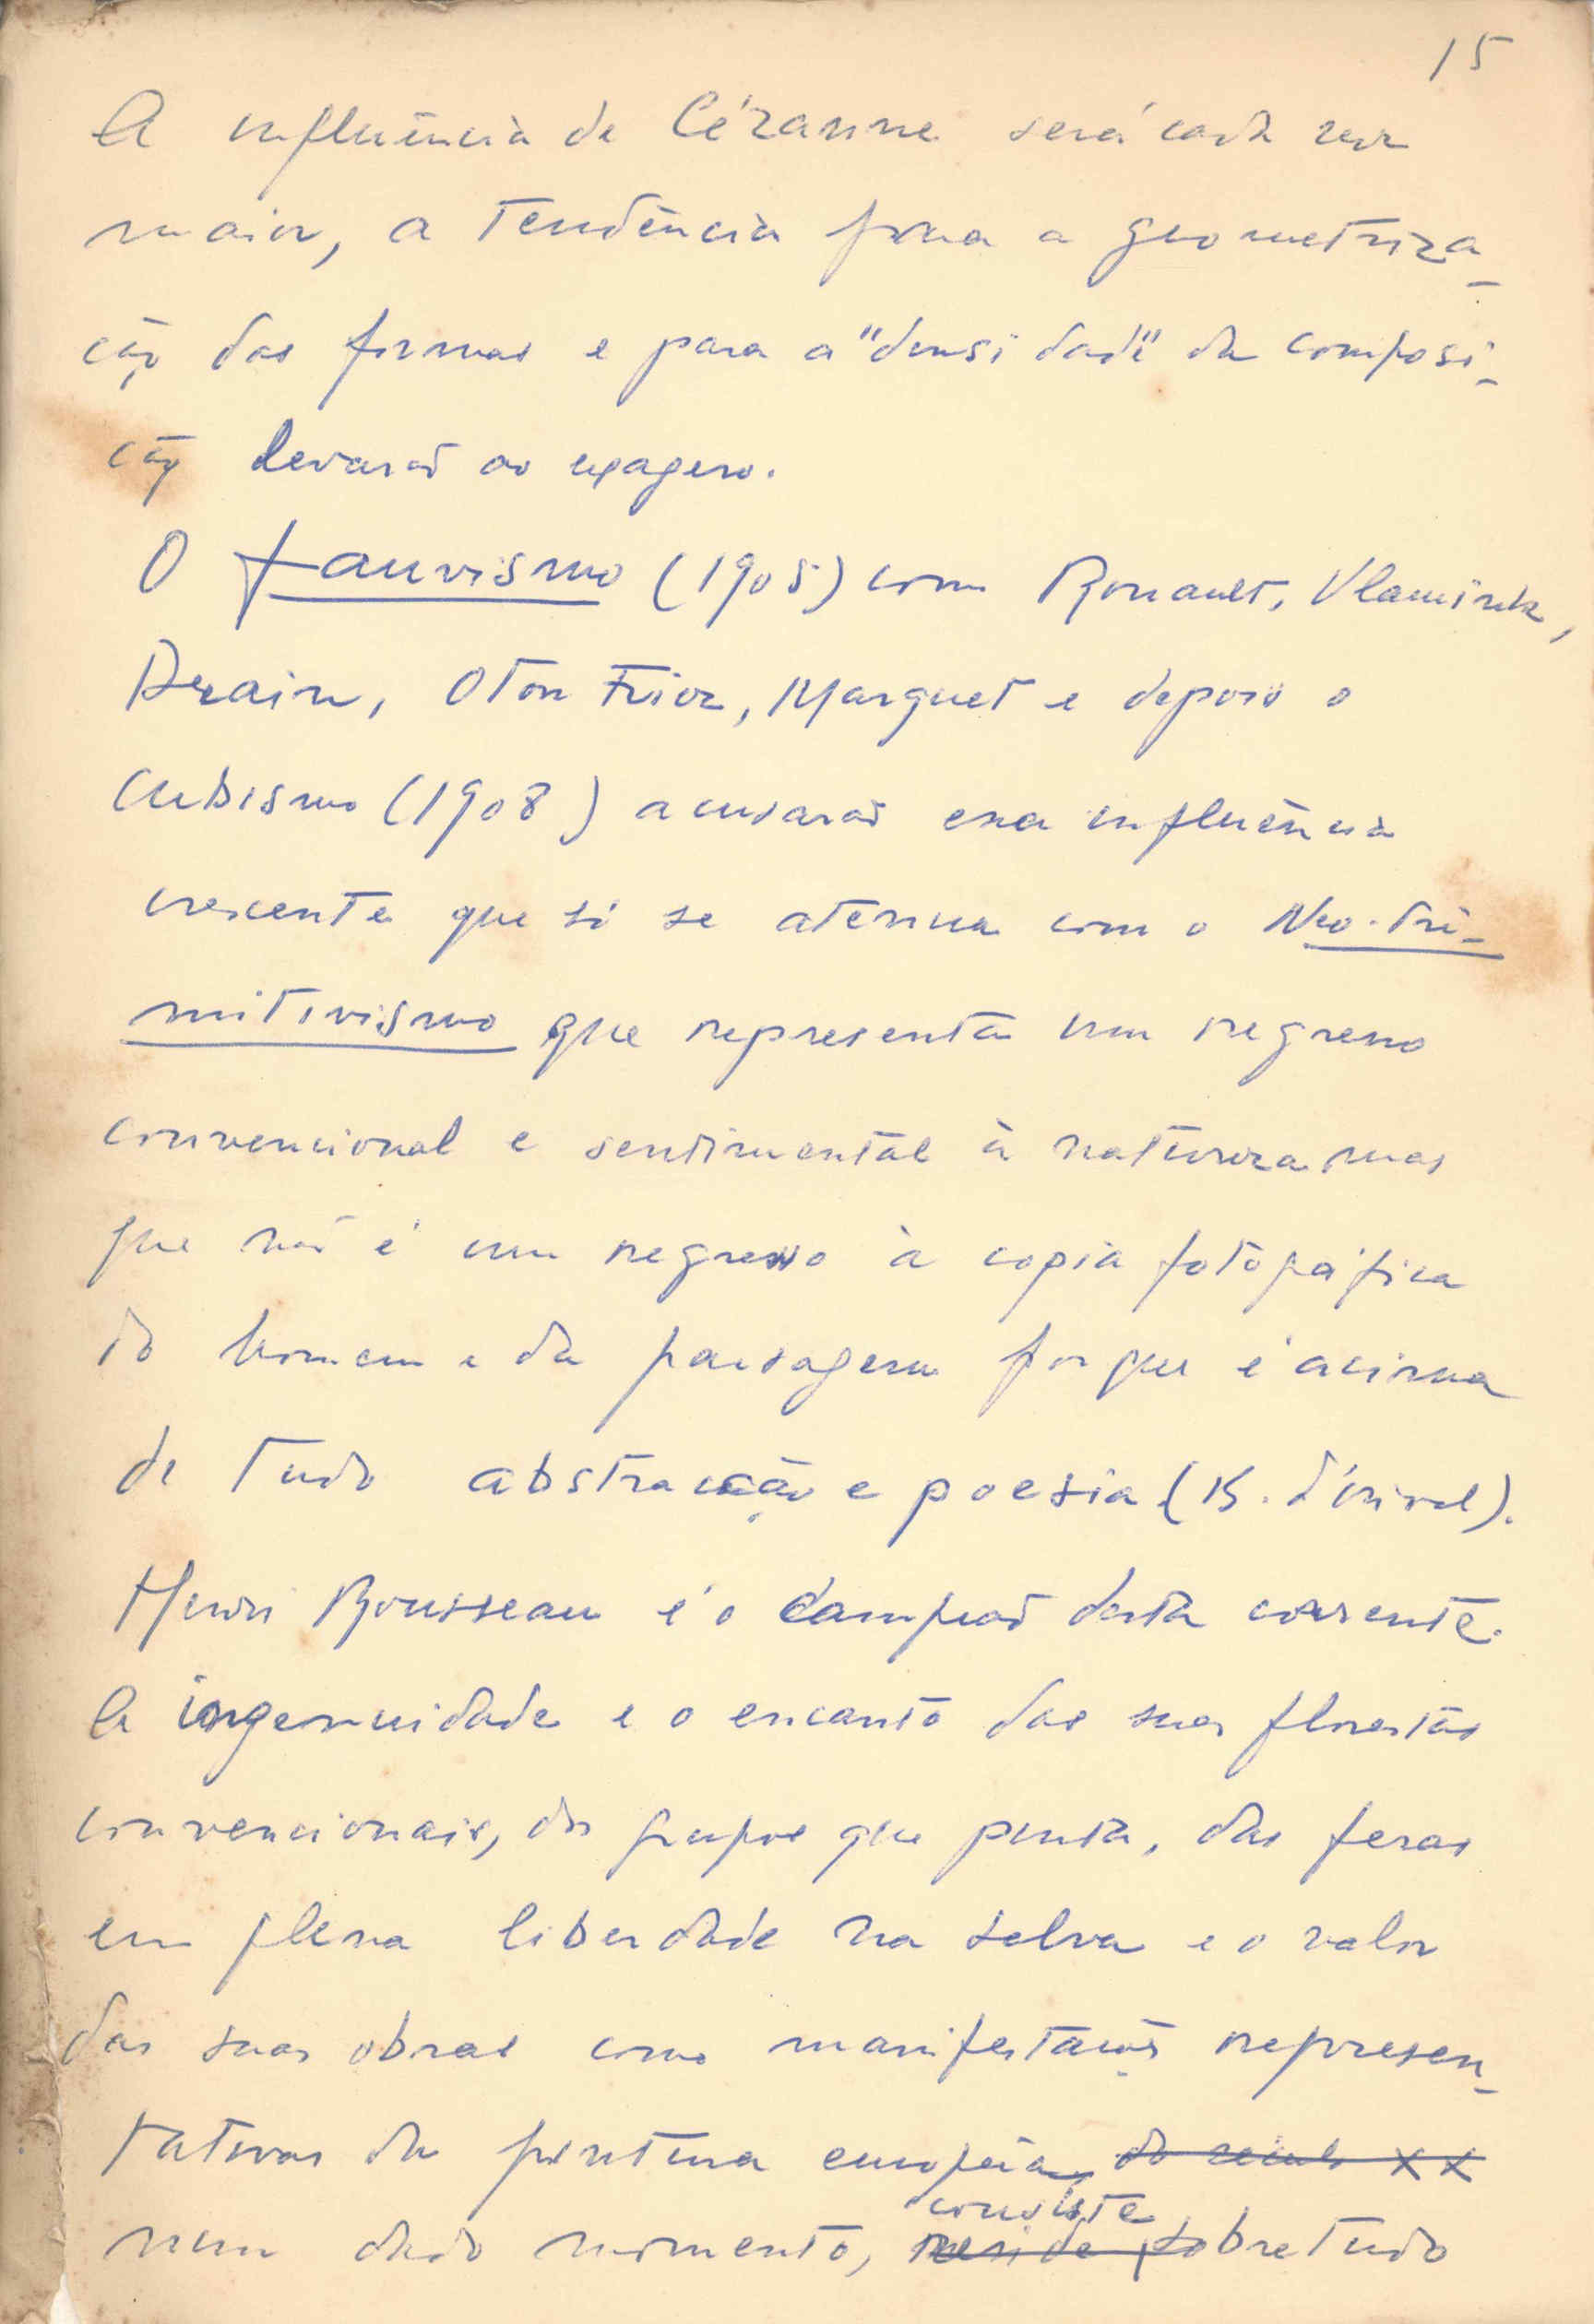 15
A influência de Cézanne será cada vez
maior, a tendência para a geometriza-
ção das formas e para a "densidade" da composi-
ção levarão ao exagero.
O fauvismo (1905) com Rouault, Vlamink,
Derain, Oton Friez, Marquet e depois o
cubismo (1908) acusarão essa influência
crescente que só se atenua com o Neo-Pri-
mitivismo que representa um regresso
convencional e sentimental à natureza mas
que não é um regresso à copia fotográfica
do homem e da paisagem porque é acima
de tudo abstracção e poesia (B. d'Orival).
Henri Rousseau é o campeão desta corrente.
A ingenuidade e o encanto das suas florestas
convencionais, dos grupos que pinta, das feras
em plena liberdade na selva e o valor
das suas obras como manifestações represen-
tativas da pintura européia, do seculo XX
consiste
num dado momento, reside sobretudo